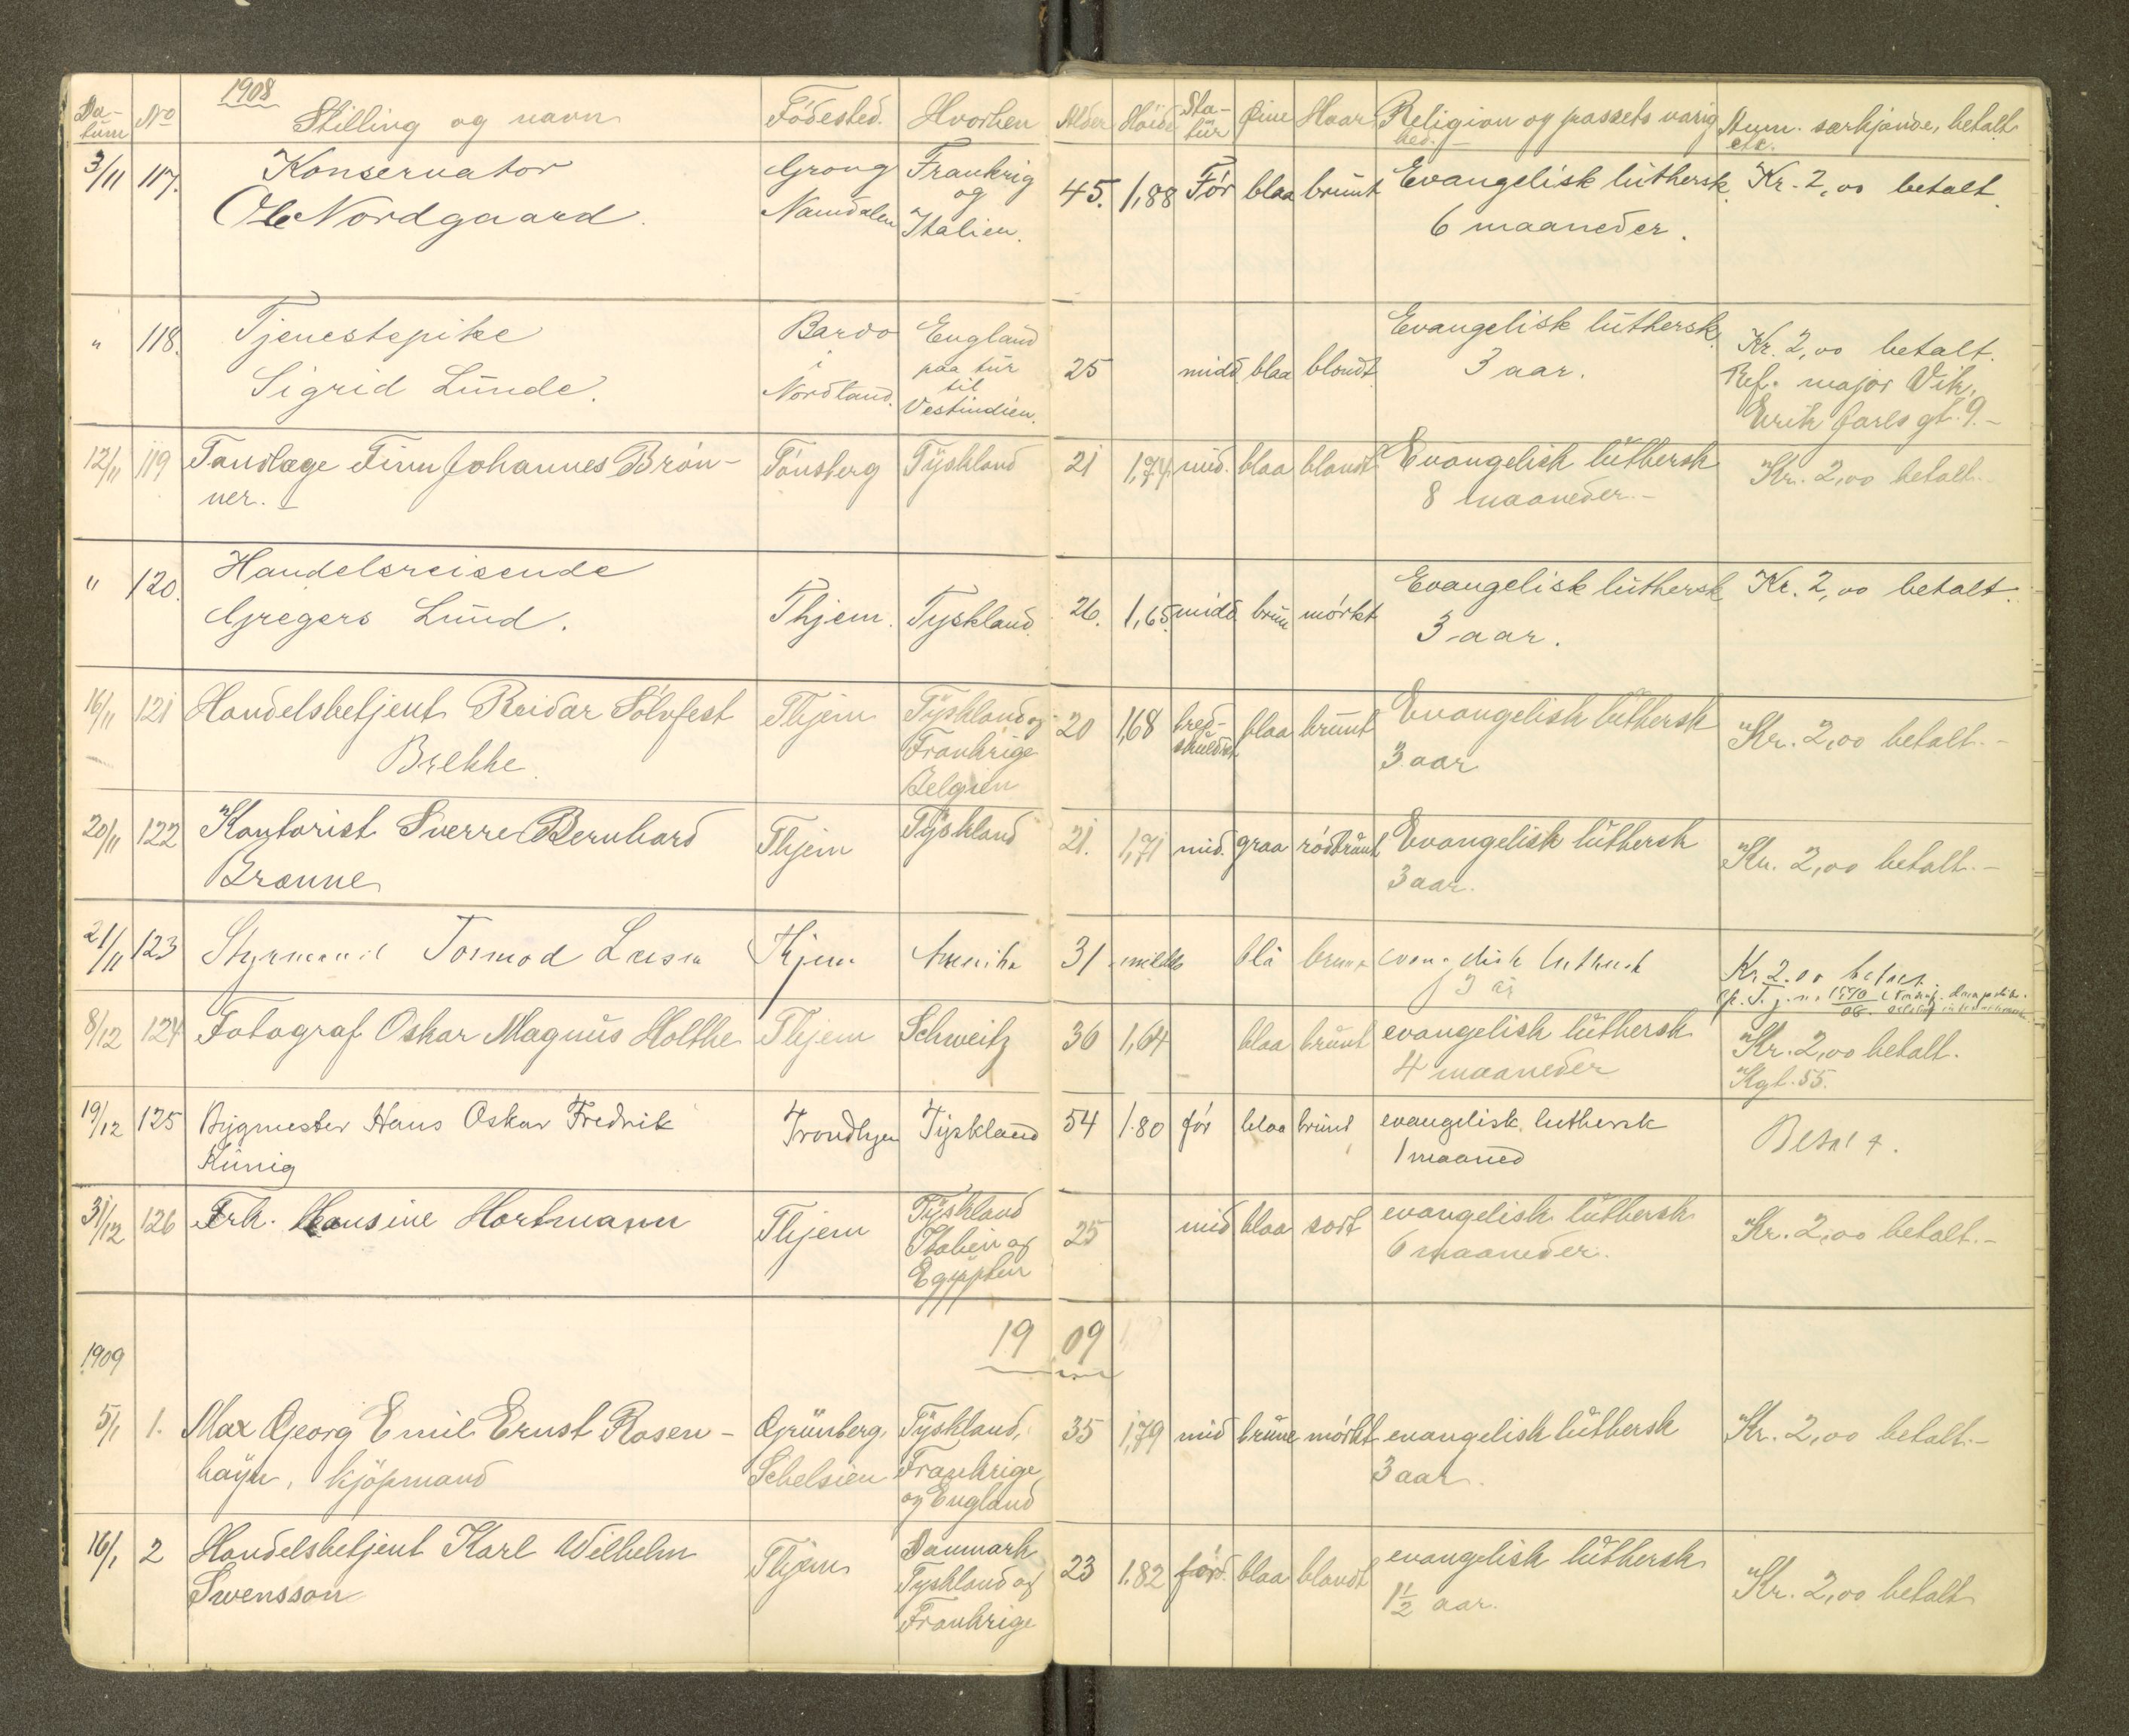 1908
Da-
tum
No
Stilling og navn
Födested.
Hvorhen
Alder
Höide
Sta-
tür
Öine
Haar
Religion og passets varig
hed.
Anm. særkjende, betalt
etc.
3/11 117. Konservator Grong Frankrig 45. 1,88 Før blaa brunt Evangelisk lüthersk. Kr. 2,00 betalt.
Ole Nordgaard. Namdalen og 6 maaneder.
Italien.
" 118. Tjenestepike Bardo England 25 midd blaa blondt. Evangelisk lüthersk. Kr. 2,00 betalt.
Sigrid Lünde. i paa tür 3 aar. Ref. major Vik,
Nordland. til Erik Jarls gt. 9.-
Vestindien.
12/11 119 Tandlæge Finn Johannes Brön- Tönsberg Tÿskland 21 1,74 mid. blaa blondt Evangelisk lüthersk Kr. 2,00 betalt.
ner. 8 maaneder.-
" 120. Handelsreisende Thjem. Tyskland. 26. 1,65. midd. brün mörkt Evangelisk lüthersk Kr. 2,00 betalt.
Gregers Lünd. 3 aar.
16/11 121 Handelsbetjent Reidar Sölvfest Thjem Tÿskland og 20 1,68 bred- blaa brünt Evangelisk lüthersk Kr. 2,00 betalt.-
Brekke Frankrige skuldret 3 aar
Belgien
20/11 122 Kontorist Sverre Bernhard Thjem Tÿskland 21. 1,71 mid. graa rödbrünt Evangelisk lüthersk Kr. 2,00 betalt.-
Brænne 3 aar.
21/11 123 Styrmand Tormod Thjem Amerika 31 middels blå luthersk Kr. 2.00 betalt.
3 år
8/12 124 Fotograf Oskar Magnüs Holthe Thjem Schweitz 36 1,64 blaa brünt evangelisk lüthersk Kr. 2,00 betalt.
4 maaneder Kgt. 55.
19/12 125 Bygmester Hans Oskar Fredrik Trondhjem Tÿskland 54 1.80 før blaa brünt evangelisk luthersk Betalt.
Künig 1 maaned
31/12 126 Frk. Hansine Hartmann Thjem Tÿskland 25 mid blaa sort evangelisk lüthersk Kr. 2,00 betalt.-
Italien og 6 maaneder.
Egÿpten
19 09
1909
5/1 1. Max Georg Emil Ernst Rosen- Grünberg, Tÿskland, 35 1,79 mid brüne mörkt evangelisk lüthersk Kr. 2,00 betalt.-
haÿn, kjöpmand Schelsien Frankrige 3 aar.
og England
16/1 2 Handelsbetjent Karl Wilhelm Thjem Danmark 23 1.82 blaa blondt evangelisk lüthersk Kr. 2,00 betalt
Svensson Tyskland og 1½ aar.
Frankrige